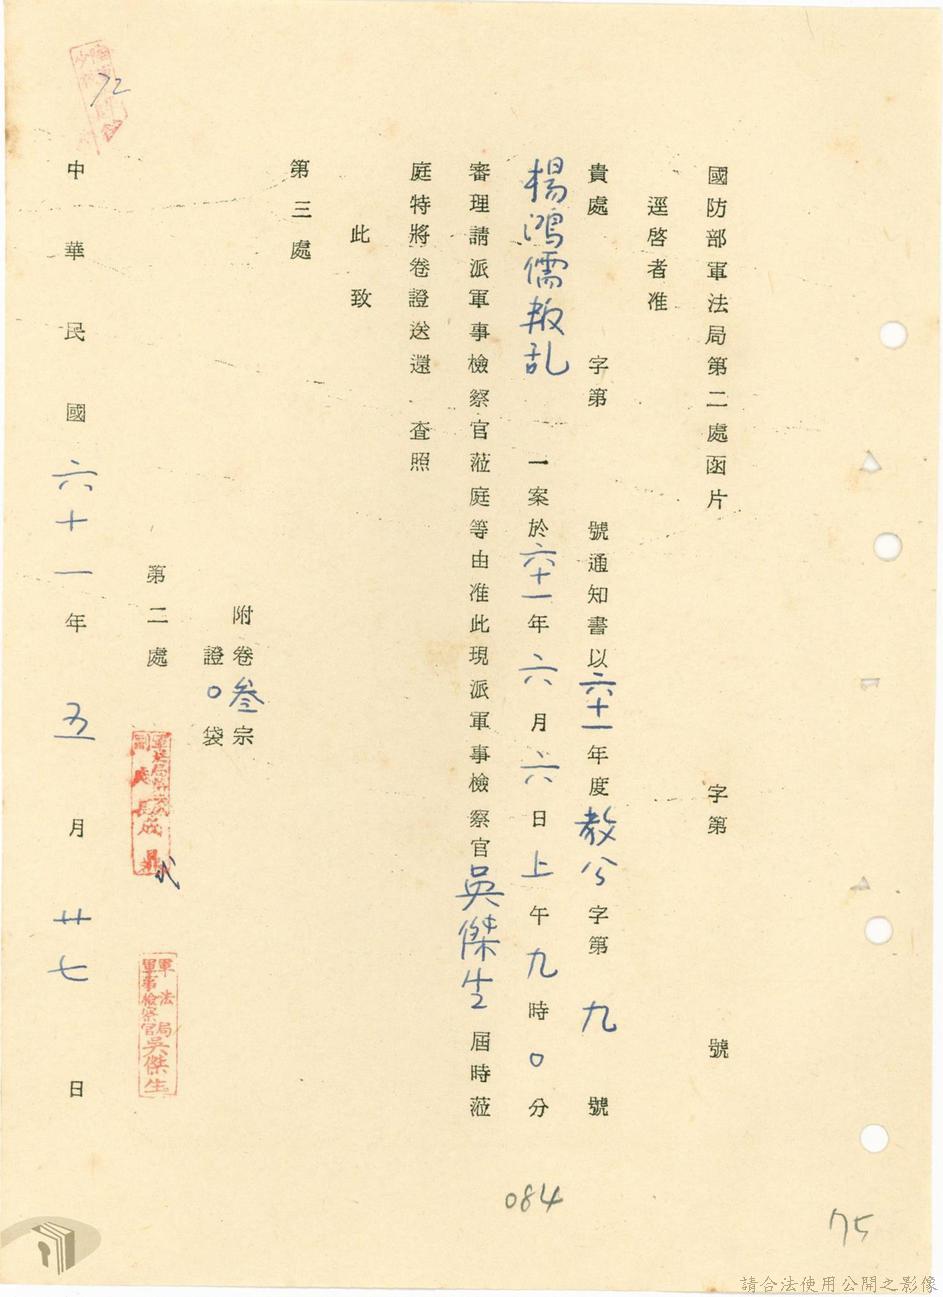 國防部軍法局第二處函片　字第　號
逕啓者准
貴處　字第　號通知書以六十一年度教公字第九號
楊鴻儒叛乱一案於六十一年六月六日上午九時0分
審理請派軍事檢察官蒞庭等由准此現派軍事檢察官吳傑生屆時蒞
庭特將卷證送還　查照
此致
第三處
附卷叁宗
證0袋
第二處
軍法局
軍事檢察官吳傑生
中華民國六十一年五月廿七日
72
084
75
請合法使用公開之影像